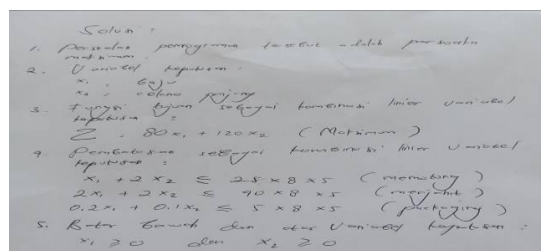 Solusi :
1. Persoalan pemrograman tersebut adalah persoalan
maksimum.
2. Variabel keputusan :
x1 : baju
x2 : celana panjang
3. Fungsi tujuan sebagai kombinasi linier variabel
keputusan :
Z = 80x1 + 120x2 (Maksimum)
4. Pembatasan sebagai kombinasi linier variabel
keputusan :
x1 + 2x2 ≤ 25 x 8 x 5 (memotong)
2x1 + 2x2 ≤ 40 x 8 x 5 (menjahit)
0.2x1 + 0.1x2 ≤ 5 x 8 x 5 (packaging)
5. Batas bawah dan atas variabel keputusan :
x1 ≥ 0 dan x2 ≥ 0